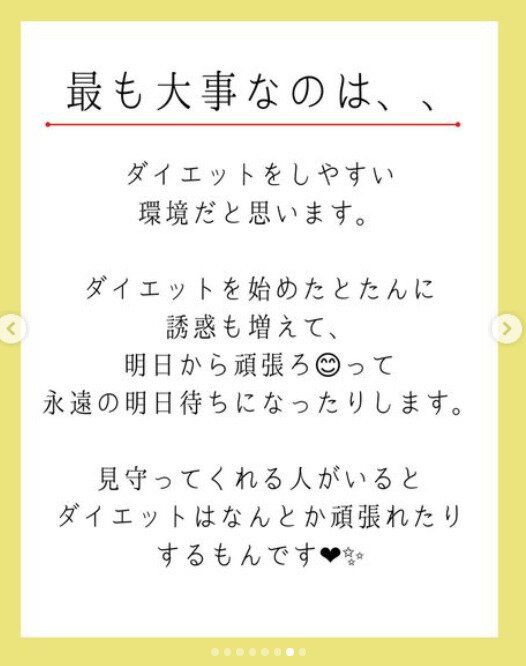 最も大事なのは、、
ダイエットをしやすい
環境だと思います。
ダイエットを始めたとたんに
誘惑も増えて、
明日から頑張ろ😊って
永遠の明日待ちになったりします。
見守ってくれる人がいると
ダイエットはなんとか頑張れたり
するもんです❤✨